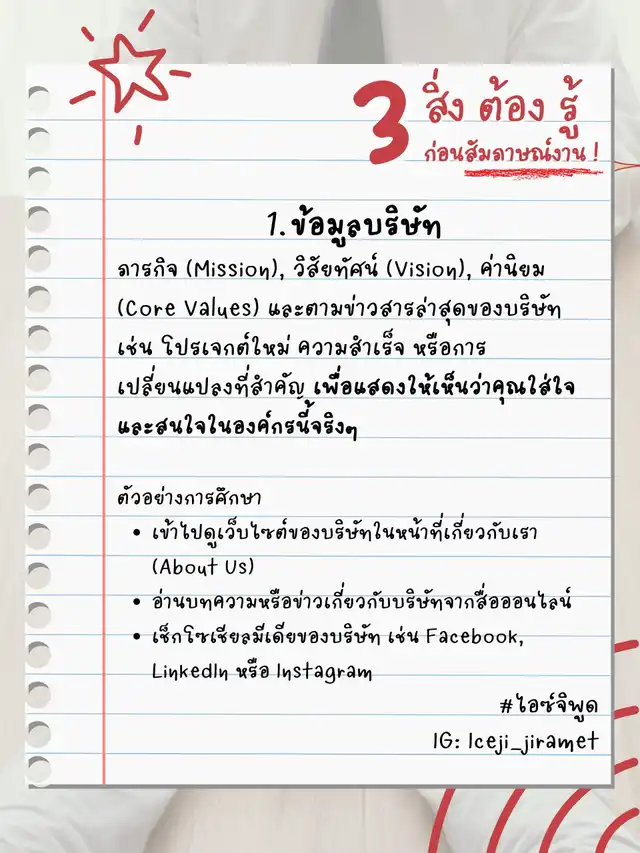 3 สิ่ง ต้อง รู้
ก่อนสัมภาษณ์งาน !
1. ข้อมูลบริษัท
ภารกิจ (Mission), วิสัยทัศน์ (Vision), ค่านิยม
(Core Values) และตามข่าวสารล่าสุดของบริษัท
เช่น โปรเจกต์ใหม่ ความสำเร็จ หรือการ
เปลี่ยนแปลงที่สำคัญ เพื่อแสดงให้เห็นว่าคุณใส่ใจ
และสนใจในองค์กรนี้จริงๆ
ตัวอย่างการศึกษา
• เข้าไปดูเว็บไซต์ของบริษัทในหน้าที่เกี่ยวกับเรา
(About Us)
• อ่านบทความหรือข่าวเกี่ยวกับบริษัทจากสื่อออนไลน์
• เช็กโซเชียลมีเดียของบริษัท เช่น Facebook,
LinkedIn หรือ Instagram
#ไอซ์จิพูด
IG: Iceji_jiramet